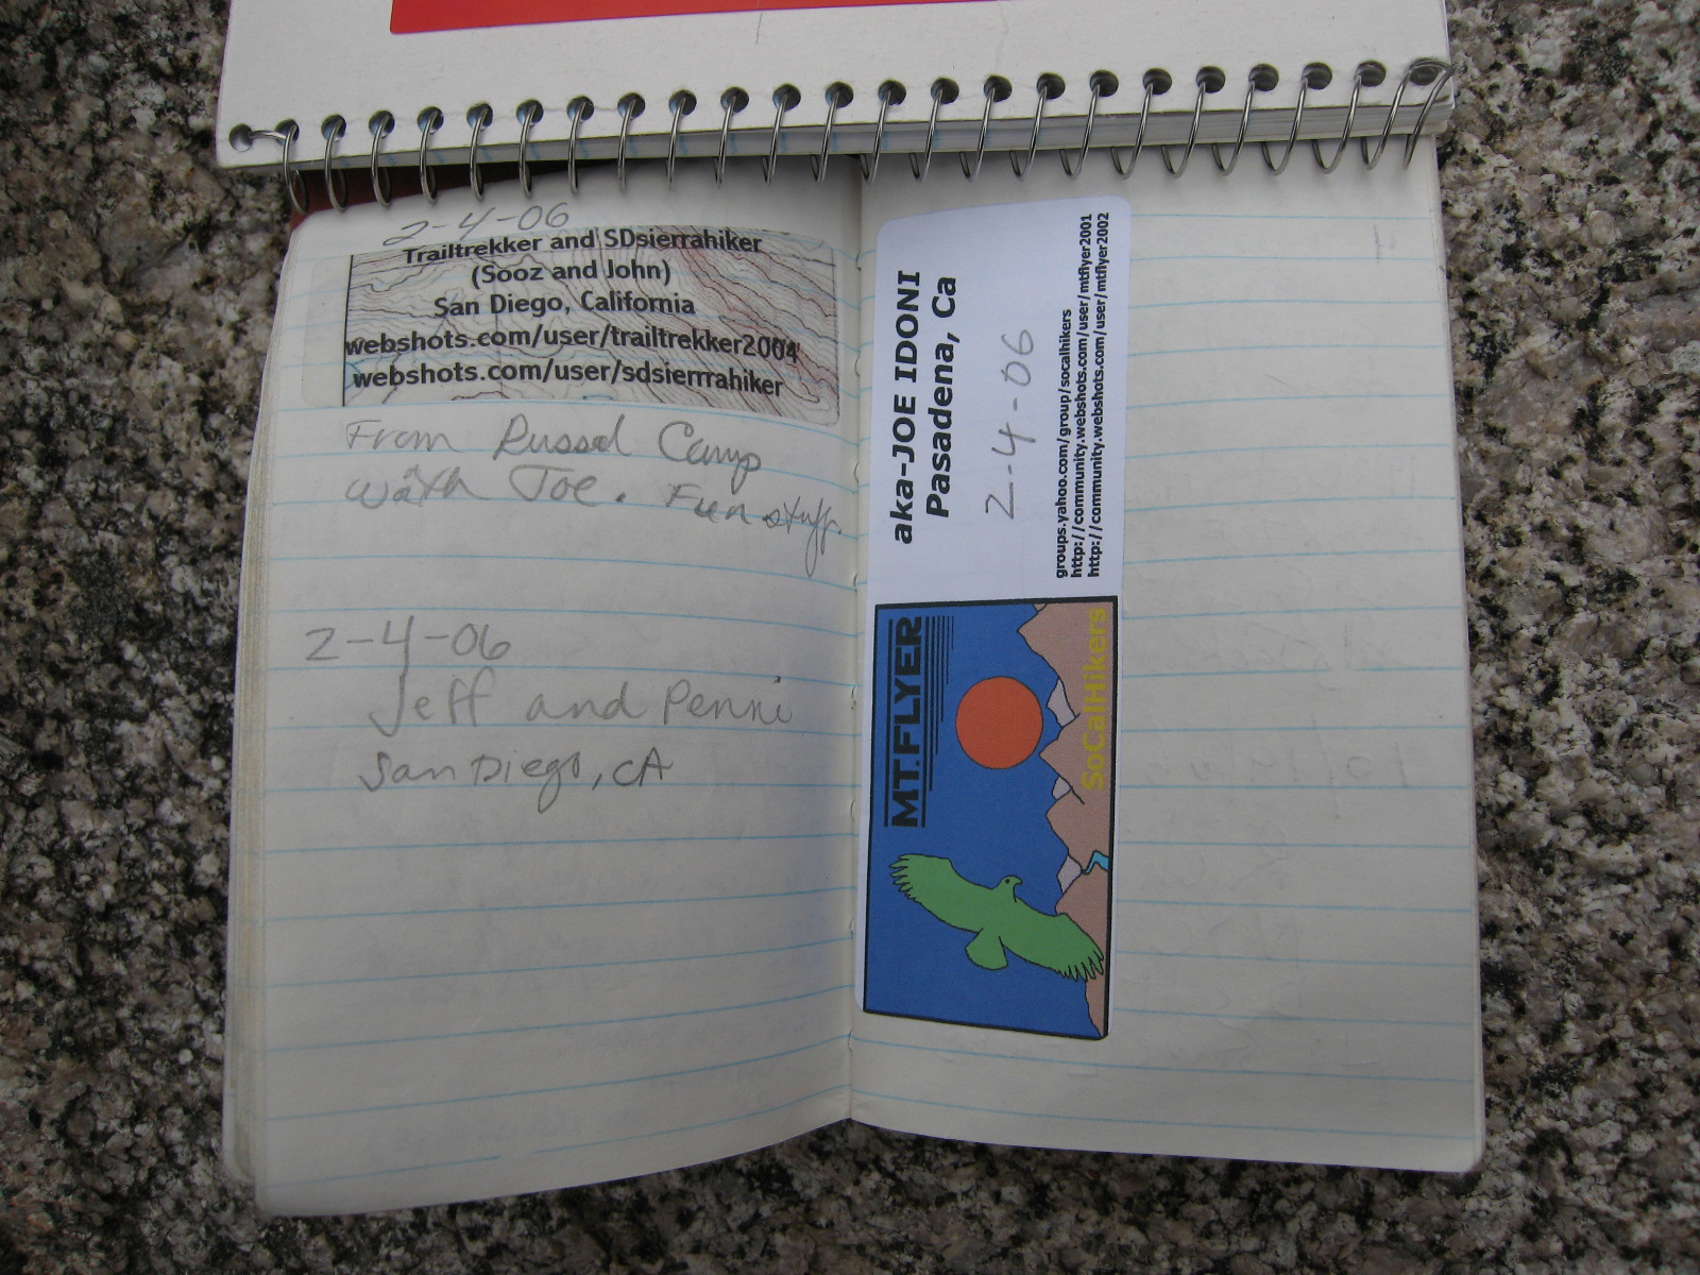 2-4-06
Trailtrekker and SDsierrahiker
(Sooz and John)
San Diego, California
webshots.com/user/trailtrekker2004
webshots.com/user/sdsierrrahiker
From Russel Camp
with Joe. Fun stuff.
2-4-06
Jeff and Penni
San Diego, CA
aka-JOE IDONI
Pasadena, Ca
2-4-06
groups.yahoo.com/group/socalhikers
http://community.webshots.com/user/mtflyer2001
http://community.webshots.com/user/mtflyer2002
MT.FLYER
SoCalHikers